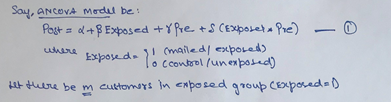 Say, ANCOVA model be:
Post = α + β Exposed + γ Pre + δ (Exposed * Pre) — ①
where Exposed = { 1 (mailed/exposed)
0 (control/unexposed)
Let there be m customers in exposed group (Exposed=1)